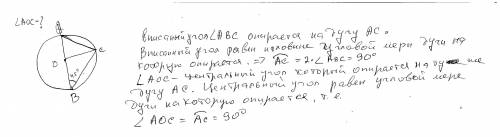 ∠AOC-?
A
C
O
45°
B
Вписанный угол ∠ABC опирается на дугу AC.
Вписанный угол равен половине угловой меры дуги на
которую опирается. => AC = 2·∠ABC = 90°
∠AOC - центральный угол который опирается на
дугу AC. Центральный угол равен угловой мере
дуги на которую опирается, т.е.
∠AOC = AC = 90°